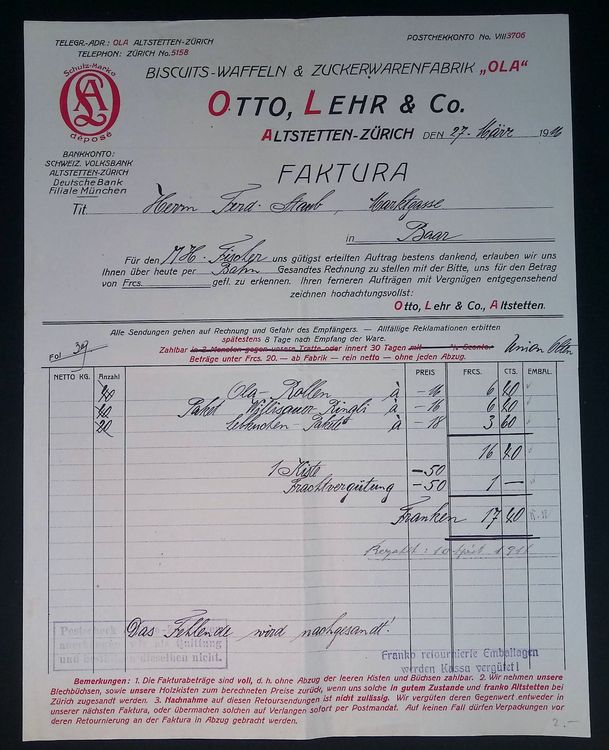 TELEGR.-ADR.: OLA ALTSTETTEN-ZÜRICH
TELEPHON: ZÜRICH No. 5158
POSTCHEKKONTO No. VIII 3706
Schutz-Marke
OLA
déposé
BISCUITS-WAFFELN & ZUCKERWARENFABRIK „OLA“
OTTO, LEHR & Co.
ALTSTETTEN-ZÜRICH DEN 27. März 1911
BANKKONTO:
SCHWEIZ. VOLKSBANK
ALTSTETTEN-ZÜRICH
Deutsche Bank
Filiale München
FAKTURA
Tit. Herrn Ferd. Staub, Marktgasse
in Baar
Für den M H. Fischer uns gütigst erteilten Auftrag bestens dankend, erlauben wir uns
Ihnen über heute per Bahn Gesandtes Rechnung zu stellen mit der Bitte, uns für den Betrag
von Frcs. gefl. zu erkennen. Ihren ferneren Aufträgen mit Vergnügen entgegensehend
zeichnen hochachtungsvollst:
Otto, Lehr & Co., Altstetten.
Alle Sendungen gehen auf Rechnung und Gefahr des Empfängers. — Allfällige Reklamationen erbitten
spätestens 8 Tage nach Empfang der Ware.
Zahlbar in 2 Monaten gegen unsere Tratte oder innert 30 Tagen mit % Sconto. Union Olten
Beträge unter Frcs. 20.— ab Fabrik — rein netto — ohne jeden Abzug.
Fol.
NETTO KG. Anzahl PREIS FRCS. CTS. EMBAL.
40 Ola-Rollen à -16 6 40
40 Paket Willisauer-Ringli à -16 6 40
20 Lebkuchen-Pakete à -18 3 60
16 40
1 Kiste -50
Frachtvergütung -50 1 —
Franken 17 40
Bezahlt: 10 April 1911
Das Fehlende wird nachgesandt!
Franko retournierte Emballagen
werden Kassa vergütet!
Bemerkungen: 1. Die Fakturabeträge sind voll, d. h. ohne Abzug der leeren Kisten und Büchsen zahlbar. 2. Wir nehmen unsere
Blechbüchsen, sowie unsere Holzkisten zum berechneten Preise zurück, wenn uns solche in gutem Zustande und franko Altstetten bei
Zürich zugesandt werden. 3. Nachnahme auf diesen Retoursendungen ist nicht zulässig. Wir vergüten deren Gegenwert entweder in
unserer nächsten Faktura, oder übermachen solchen auf Verlangen sofort per Postmandat. Auf keinen Fall dürfen Verpackungen vor
deren Retournierung an der Faktura in Abzug gebracht werden.
2.-